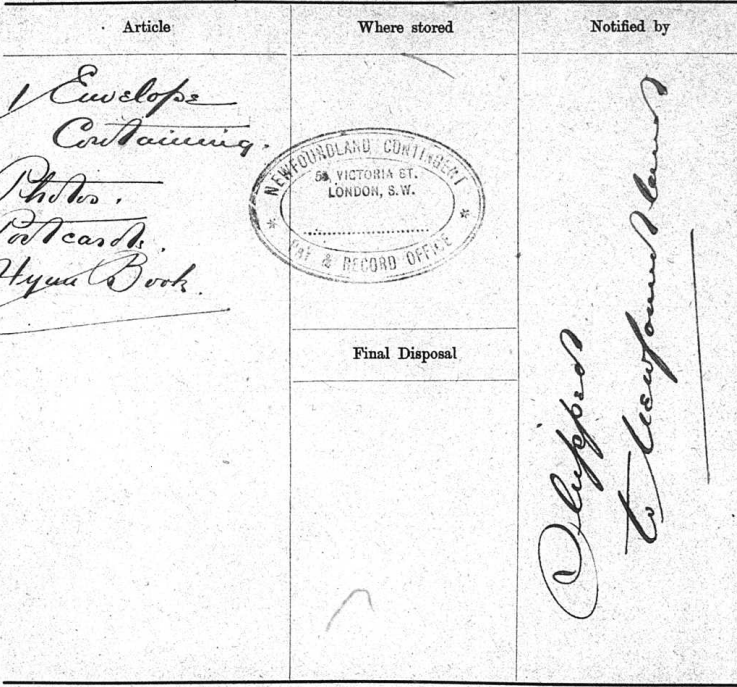 Article
Where stored
Notified by
1 Envelope
Containing.
Photos.
Postcards.
Hymn Book.
NEWFOUNDLAND CONTINGENT
58, VICTORIA ST.
LONDON, S.W.
PAY & RECORD OFFICE
Final Disposal
Shipped
to Newfoundland